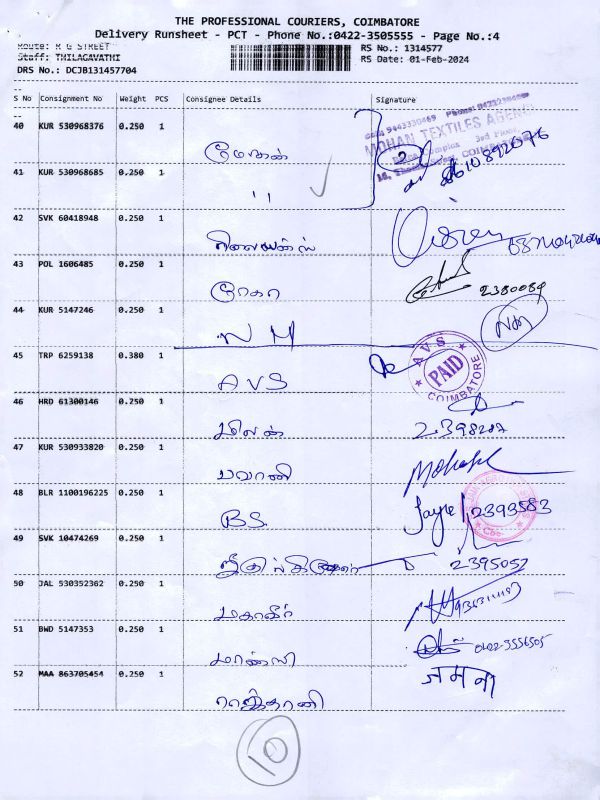 THE PROFESSIONAL COURIERS, COIMBATORE
Delivery Runsheet - PCT - Phone No.:0422-3505555 - Page No.:4
Route: R G STREET
RS No.: 1314577
Staff: THILAGAVATHI
RS Date: 01-Feb-2024
DRS No.: DCJB131457704
S No Consignment No Weight PCS Consignee Details Signature
40 KUR 530968376 0.250 1
மோகன்
MOHAN TEXTILES AGENCY
41 KUR 530968685 0.250 1
"
42 SVK 60418948 0.250 1
43 POL 1606485 0.250 1
2380089
44 KUR 5147246 0.250 1
N M
45 TRP 6259138 0.380 1
AVS
AVS PAID COIMBATORE
46 HRD 61300146 0.250 1
மிலன்
2398287
47 KUR 530933820 0.250 1
பவானி
48 BLR 1100196225 0.250 1
B.S.
2393583
49 SVK 10474269 0.250 1
2395052
50 JAL 530352362 0.250 1
மகாவீர்
51 BWD 5147353 0.250 1
0422-3556505
52 MAA 863705454 0.250 1
ராஜஸ்தானி
जमना
10